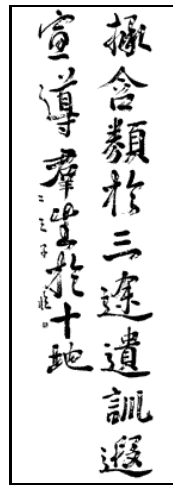 拯含類於三途遺訓遐
宣導群生於十地
二玄子